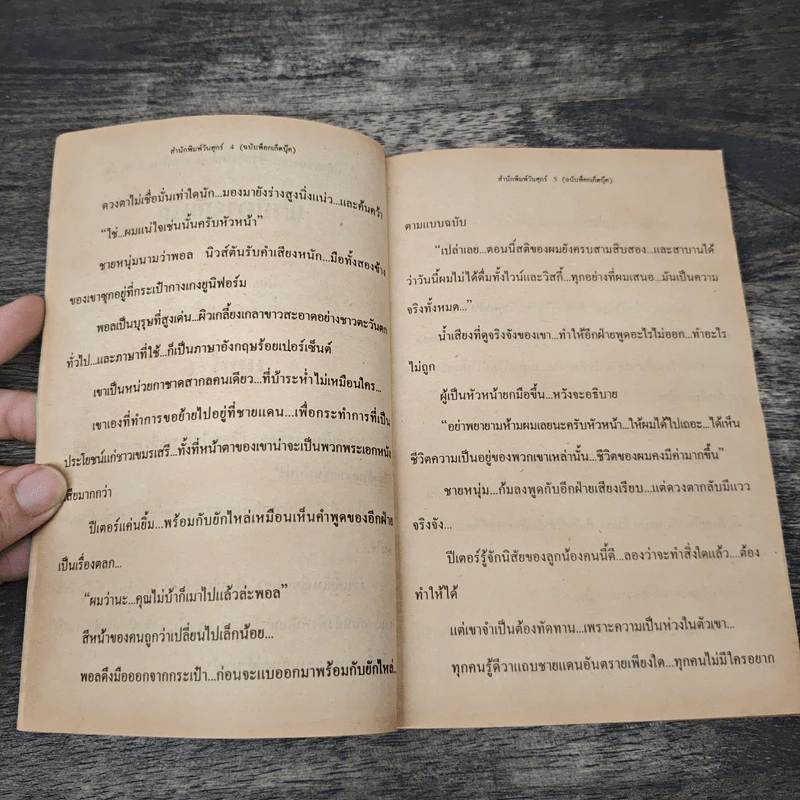 สำนักพิมพ์วันศุกร์ 4 (ฉบับพ็อกเก็ตบุ๊ค)
ดวงตาไม่เชื่อมั่นเท่าใดนัก...มองมายังร่างสูงนิ่งแน่ว...และค้นคว้า
“ใช่...ผมแน่ใจเช่นนั้นครับหัวหน้า”
ชายหนุ่มนามว่าพอล นิวส์ตันรับคำเสียงหนัก...มือทั้งสองข้าง
ของเขาซุกอยู่ที่กระเป๋ากางเกงยูนิฟอร์ม
พอลเป็นบุรุษที่สูงเด่น...ผิวเกลี้ยงเกลาขาวสะอาดอย่างชาวตะวันตก
ทั่วไป...และภาษาที่ใช้...ก็เป็นภาษาอังกฤษร้อยเปอร์เซ็นต์
เขาเป็นหน่วยกาชาดสากลคนเดียว...ที่บ้าระห่ำไม่เหมือนใคร...
เขาเองที่ทำการขอย้ายไปอยู่ที่ชายแดน...เพื่อกระทำการที่เป็น
ประโยชน์แก่ชาวเขมรเสรี...ทั้งที่หน้าตาของเขาน่าจะเป็นพวกพระเอกหนัง
เสียมากกว่า
ปีเตอร์แค่นยิ้ม...พร้อมกับยักไหล่เหมือนเห็นคำพูดของอีกฝ่าย
เป็นเรื่องตลก...
“ผมว่านะ...คุณไม่บ้าก็เมาไปแล้วล่ะพอล”
สีหน้าของคนถูกว่าเปลี่ยนไปเล็กน้อย...
พอลดึงมือออกจากกระเป๋า...ก่อนจะแบออกมาพร้อมกับยักไหล่...
สำนักพิมพ์วันศุกร์ 5 (ฉบับพ็อกเก็ตบุ๊ค)
ตามแบบฉบับ
“เปล่าเลย...ตอนนี้สติของผมยังครบสามสิบสอง...และสาบานได้
ว่าวันนี้ผมไม่ได้ดื่มทั้งไวน์และวิสกี้...ทุกอย่างที่ผมเสนอ...มันเป็นความ
จริงทั้งหมด...”
น้ำเสียงที่ดูจริงจังของเขา...ทำให้อีกฝ่ายพูดอะไรไม่ออก...ทำอะไร
ไม่ถูก
ผู้เป็นหัวหน้ายกมือขึ้น...หวังจะอธิบาย
“อย่าพยายามห้ามผมเลยนะครับหัวหน้า...ให้ผมได้ไปเถอะ...ได้เห็น
ชีวิตความเป็นอยู่ของพวกเขาเหล่านั้น...ชีวิตของผมคงมีค่ามากขึ้น”
ชายหนุ่ม...ก้มลงพูดกับอีกฝ่ายเสียงเรียบ...แต่ดวงตากลับมีแวว
จริงจัง...
ปีเตอร์รู้จักนิสัยของลูกน้องคนนี้ดี...ลองว่าจะทำสิ่งใดแล้ว....ต้อง
ทำให้ได้
แต่เขาจำเป็นต้องทัดทาน...เพราะความเป็นห่วงในตัวเขา...
ทุกคนรู้ดีว่าแถบชายแดนอันตรายเพียงใด...ทุกคนไม่มีใครอยาก